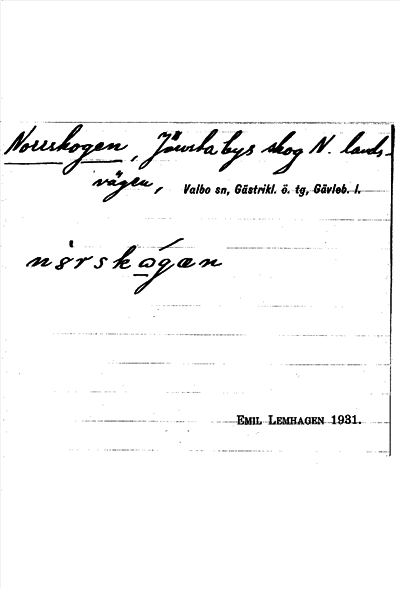 Norrskogen, Järvsta bys skog N. lands-
vägen, Valbo sn, Gästrikl. ö. tg, Gävleb. l.
EMIL LEMHAGEN 1931.